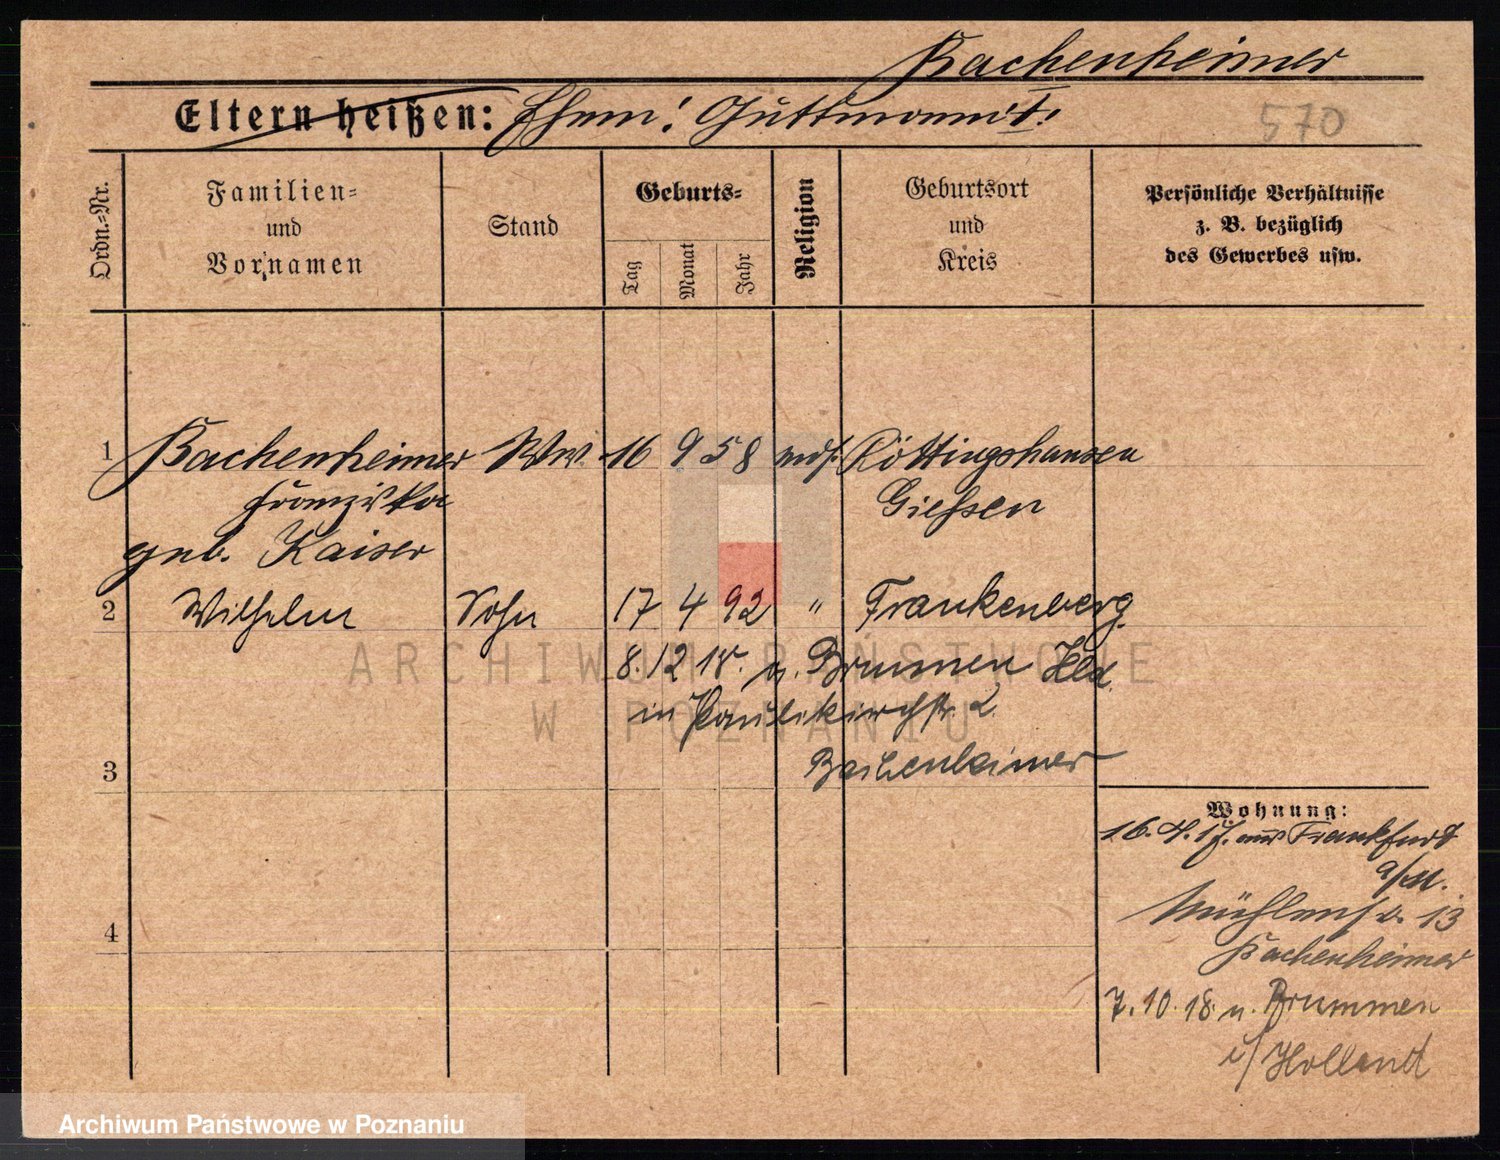 Bachenheimer
Eltern heißen: Ehem: Guttmann †. 570
Ordn.=Nr.
Familien=
und
Vornamen
Stand
Geburts=
Tag
Monat
Jahr
Religion
Geburtsort
und
Kreis
Persönliche Verhältnisse
z. B. bezüglich
des Gewerbes usw.
1 Bachenheimer Ww. 16 9 58 mos. Röttingshausen
Franziska Giessen
geb. Kaiser
2 Wilhelm Sohn 17 4 92 " Frankenberg
8. 12 18. n. Brummen Hld.
in Paulikirchstr. 2
Bachenheimer
3
Wohnung:
16. 4. 17. aus Frankfurt
a/M.
Mühlenstr. 13
Bachenheimer
4
7. 10. 18. n. Brummen
i/Holland
ARCHIWUM PAŃSTWOWE
W POZNANIU
Archiwum Państwowe w Poznaniu